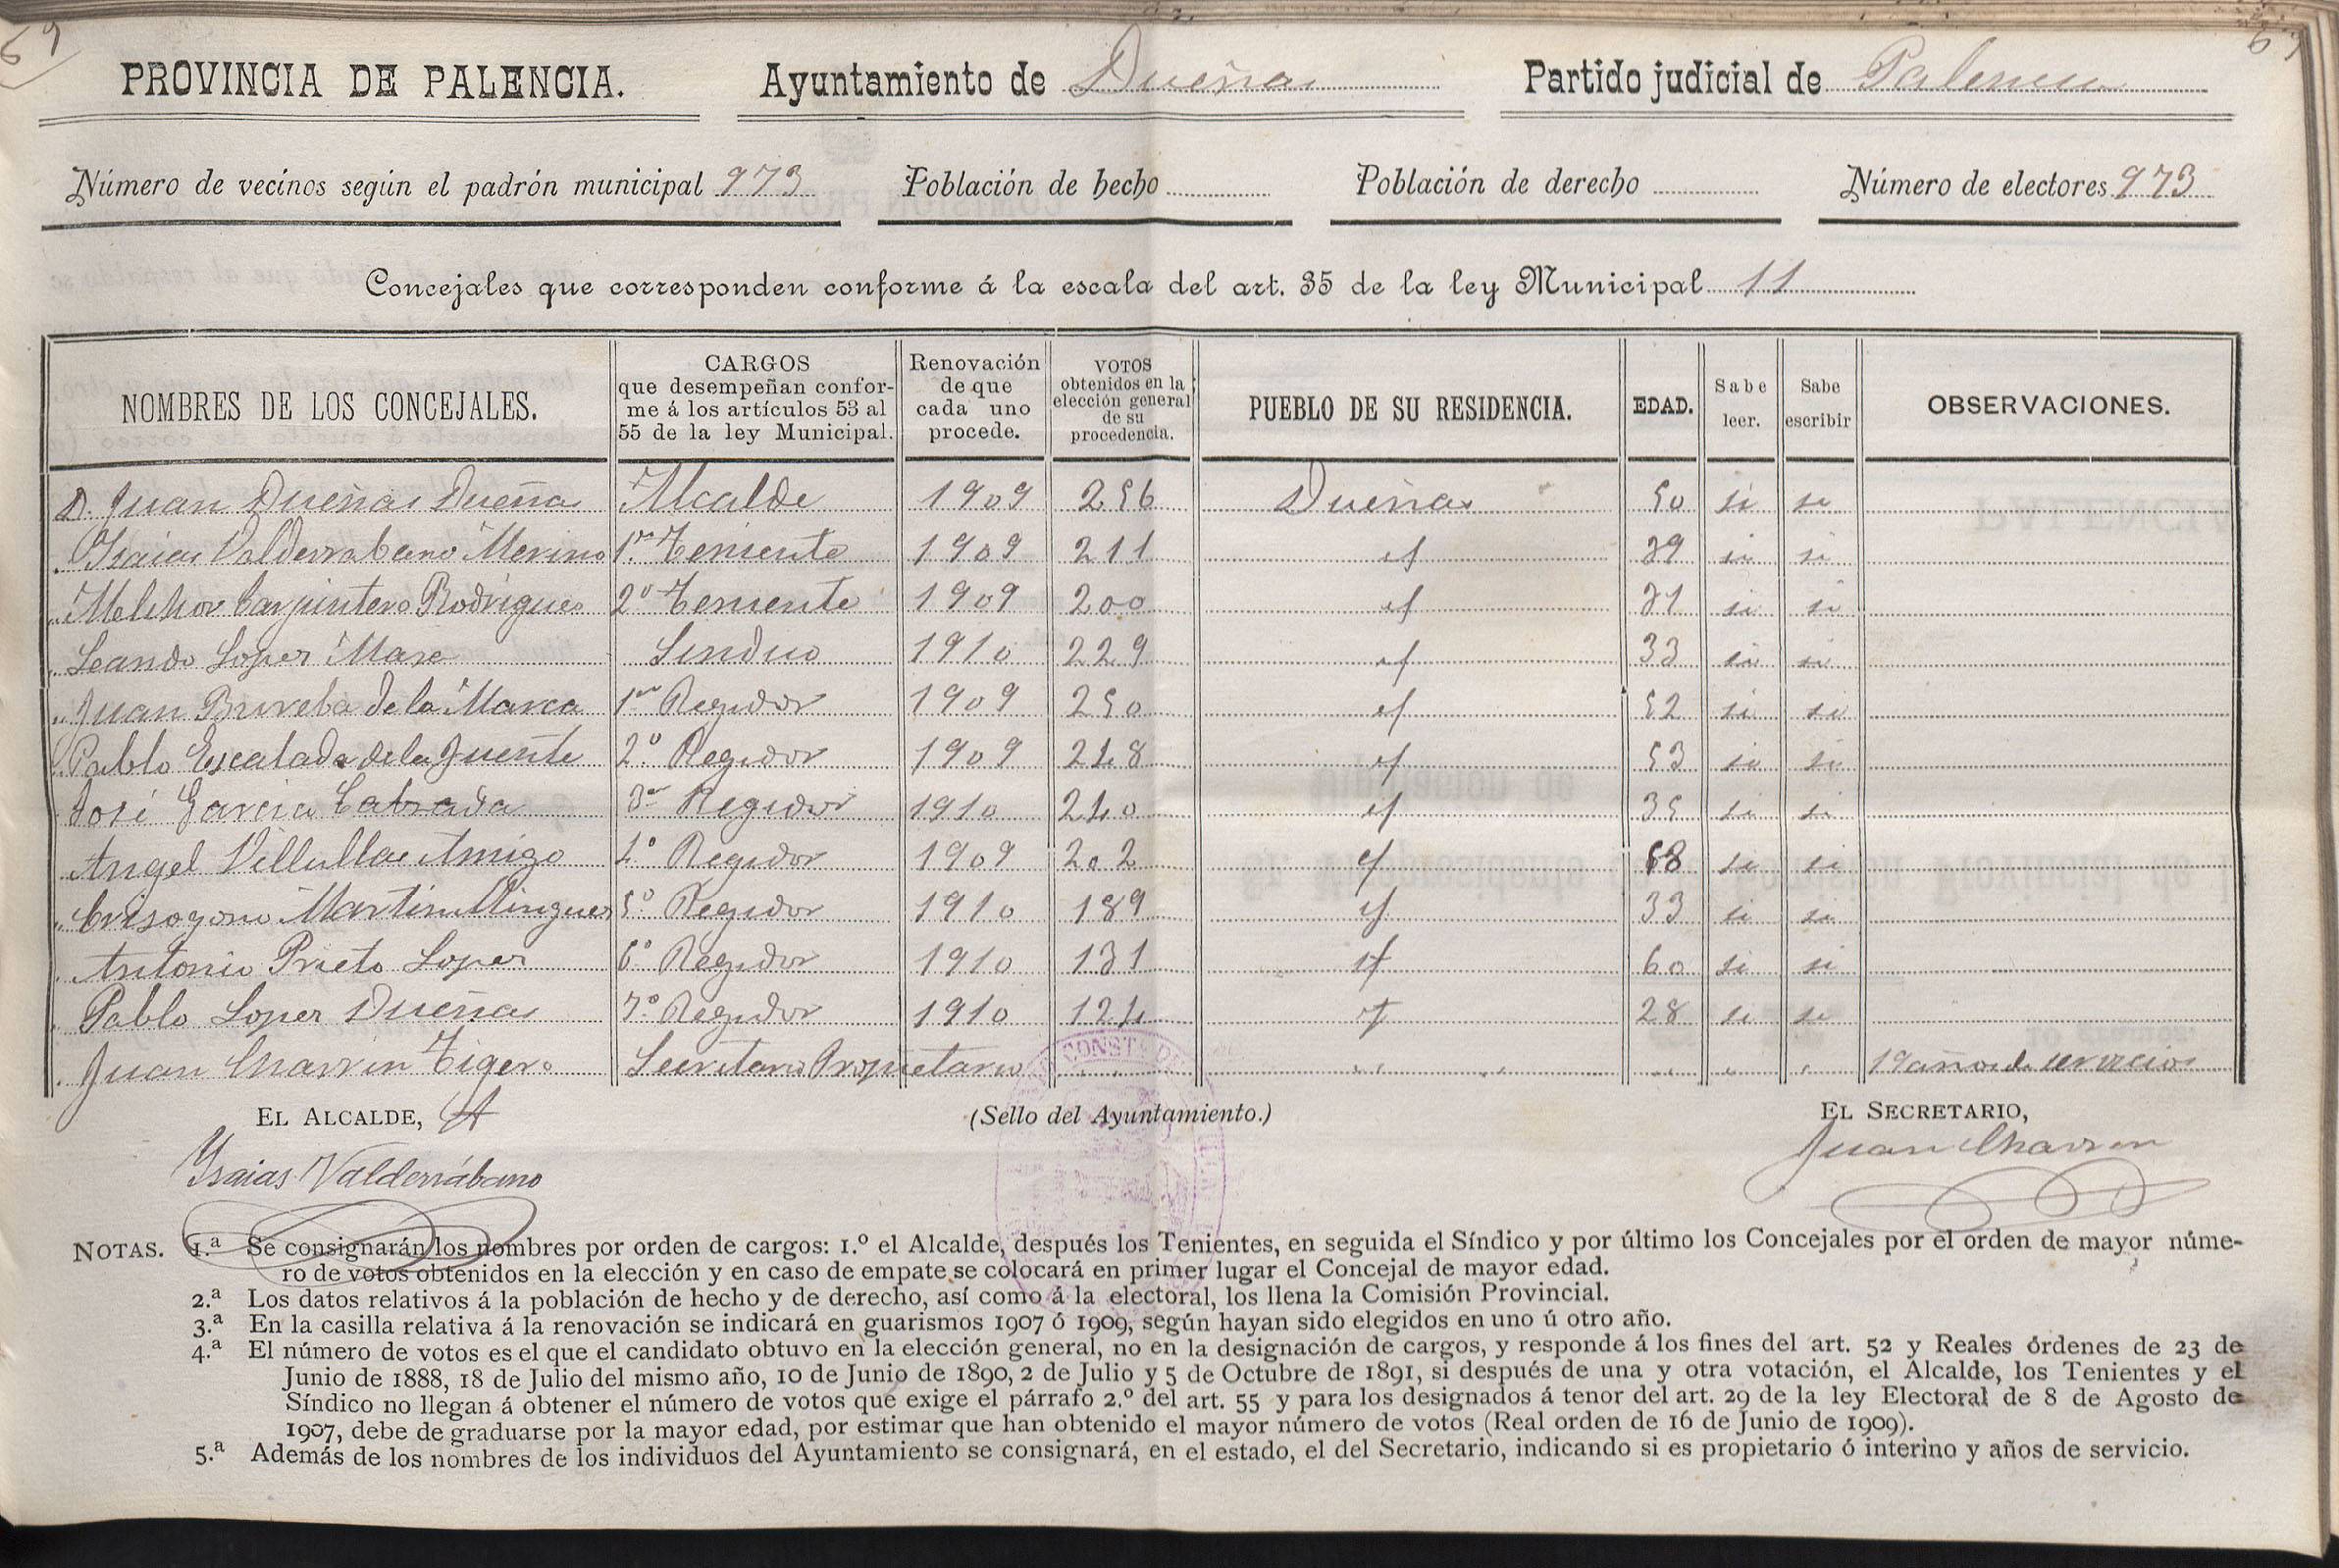 67
PROVINCIA DE PALENCIA. Ayuntamiento de Dueñas Partido judicial de Palencia
Número de vecinos según el padrón municipal 973 Población de hecho Población de derecho Número de electores 973
Concejales que corresponden conforme á la escala del art. 35 de la ley Municipal 11
NOMBRES DE LOS CONCEJALES. CARGOS que desempeñan conforme á los artículos 53 al 55 de la ley Municipal. Renovación de que cada uno procede. VOTOS obtenidos en la elección general de su procedencia. PUEBLO DE SU RESIDENCIA. EDAD. Sabe leer. Sabe escribir OBSERVACIONES.
D. Juan Dueñas Dueñas Alcalde 1909 256 Dueñas 50 si si
Isaias Valderrabano Merino 1er Teniente 1909 211 id 39 si si
Melchor Carpintero Rodrigues 2º Teniente 1909 200 id 31 si si
Leandro Lopez Mase Sindico 1910 229 id 33 si si
Juan Brireba de la Marca 1er Regidor 1909 250 id 52 si si
Pablo Escalada de la Fuente 2º Regidor 1909 248 id 53 si si
José Garcia Calzada 3er Regidor 1910 240 id 35 si si
Angel Villullas Amigo 4º Regidor 1909 202 id 68 si si
Crisogono Martin Mingues 5º Regidor 1910 189 id 33 si si
Antonio Prieto Lopez 6º Regidor 1910 131 id 60 si si
Pablo Lopez Dueñas 7º Regidor 1910 124 id 28 si si
Juan Charrin Tigero Secretario Propietario " " " " " " 19 años de servicios
EL ALCALDE, (Sello del Ayuntamiento.) EL SECRETARIO,
Ysaias Valderrábano Juan Charrin
NOTAS. 1.ª Se consignarán los nombres por orden de cargos: 1.º el Alcalde, después los Tenientes, en seguida el Síndico y por último los Concejales por el orden de mayor núme-
ro de votos obtenidos en la elección y en caso de empate se colocará en primer lugar el Concejal de mayor edad.
2.ª Los datos relativos á la población de hecho y de derecho, así como á la electoral, los llena la Comisión Provincial.
3.ª En la casilla relativa á la renovación se indicará en guarismos 1907 ó 1909, según hayan sido elegidos en uno ú otro año.
4.ª El número de votos es el que el candidato obtuvo en la elección general, no en la designación de cargos, y responde á los fines del art. 52 y Reales órdenes de 23 de
Junio de 1888, 18 de Julio del mismo año, 10 de Junio de 1890, 2 de Julio y 5 de Octubre de 1891, si después de una y otra votación, el Alcalde, los Tenientes y el
Síndico no llegan á obtener el número de votos que exige el párrafo 2.º del art. 55 y para los designados á tenor del art. 29 de la ley Electoral de 8 de Agosto de
1907, debe de graduarse por la mayor edad, por estimar que han obtenido el mayor número de votos (Real orden de 16 de Junio de 1909).
5.ª Además de los nombres de los individuos del Ayuntamiento se consignará, en el estado, el del Secretario, indicando si es propietario ó interino y años de servicio.